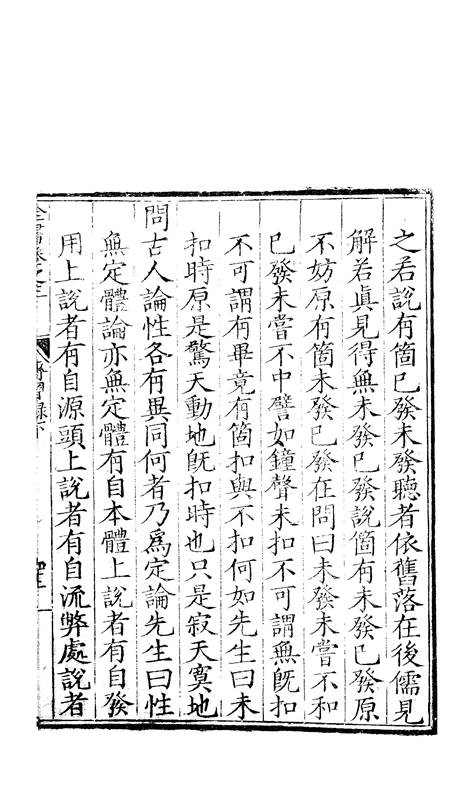 之若說有箇已發未發聽者依舊落在後儒見
解若眞見得無未發已發說箇有未發已發原
不妨原有箇未發已發在問曰未發未嘗不和
已發未嘗不中譬如鐘聲未扣不可謂無旣扣
不可謂有畢竟有箇扣與不扣何如先生曰未
扣時原是驚天動地旣扣時也只是寂天寞地
問古人論性各有異同何者乃爲定論先生曰性
無定體論亦無定體有自本體上說者有自發
用上說者有自源頭上說者有自流弊處說者
傳習錄下